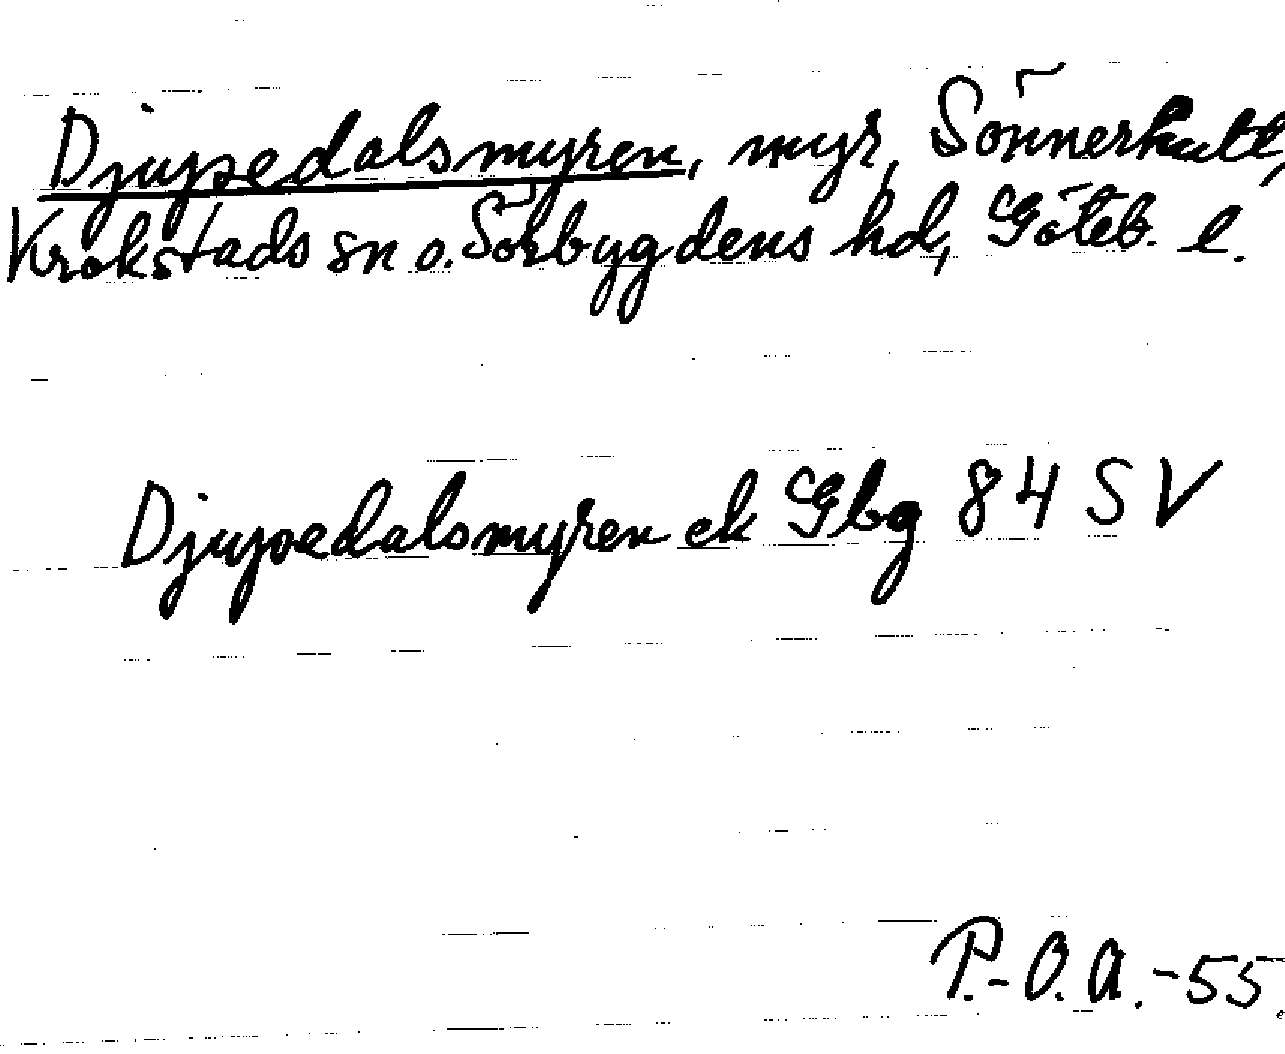 Djupedalsmyren, myr, Sönnerhult,
Krokstads sn o. Sörbygdens hd, Göteb. l.
Djupedalsmyren ek Gbg 84 SV
P.-O.A.-55